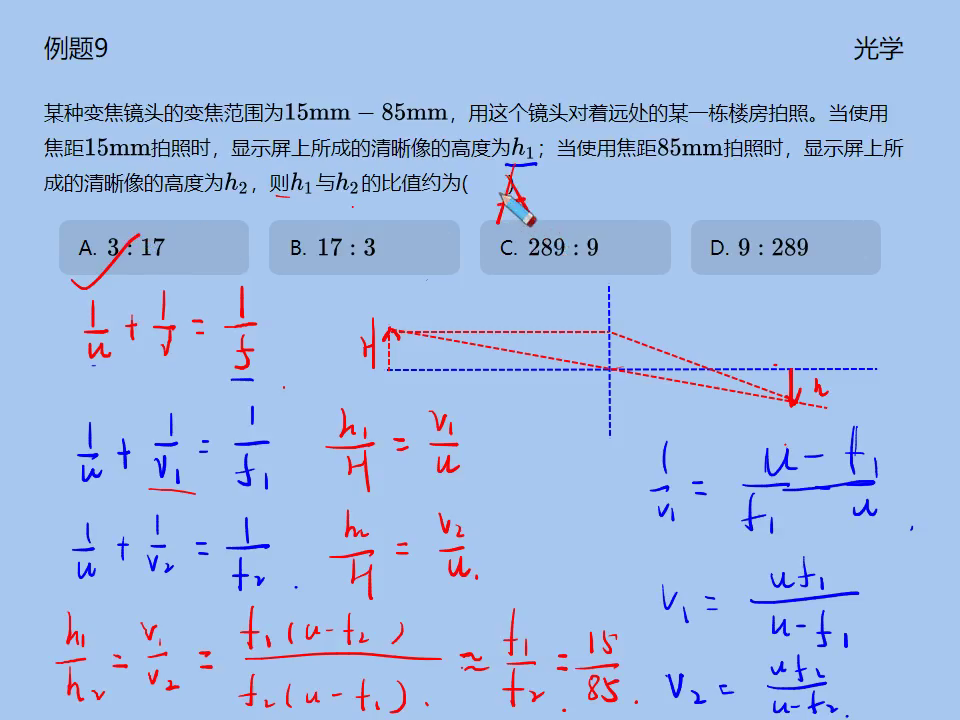 例题9
光学
某种变焦镜头的变焦范围为15mm − 85mm，用这个镜头对着远处的某一栋楼房拍照。当使用
焦距15mm拍照时，显示屏上所成的清晰像的高度为h₁；当使用焦距85mm拍照时，显示屏上所
成的清晰像的高度为h₂，则h₁与h₂的比值约为( A )
A. 3 : 17
B. 17 : 3
C. 289 : 9
D. 9 : 289
1/u + 1/v = 1/f
H
h
1/u + 1/v₁ = 1/f₁
h₁/H = v₁/u
1/v₁ = (u − f₁)/(f₁ u)
1/u + 1/v₂ = 1/f₂
h₂/H = v₂/u
v₁ = uf₁/(u − f₁)
h₁/h₂ = v₁/v₂ = f₁(u − f₂)/f₂(u − f₁) ≈ f₁/f₂ = 15/85
v₂ = uf₂/(u − f₂)